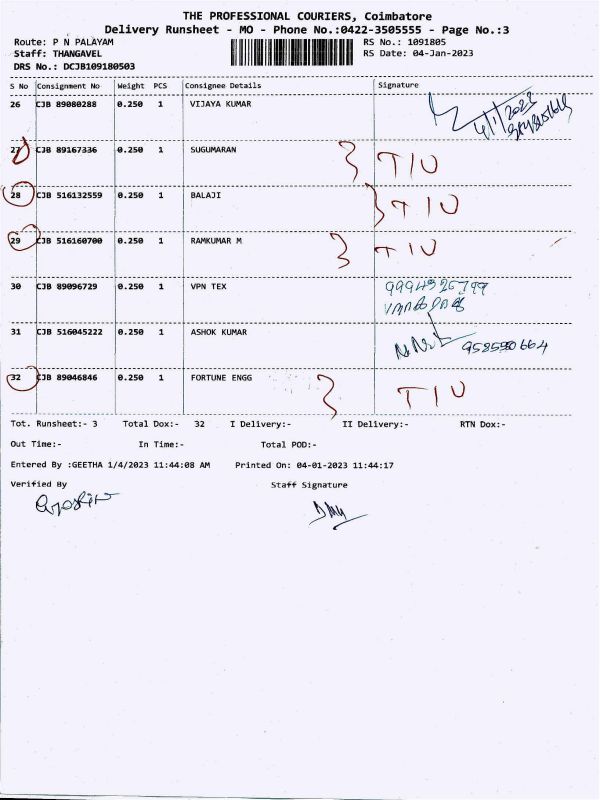 THE PROFESSIONAL COURIERS, Coimbatore
Delivery Runsheet - MO - Phone No.:0422-3505555 - Page No.:3
Route: P N PALAYAM RS No.: 1091805
Staff: THANGAVEL RS Date: 04-Jan-2023
DRS No.: DCJB109180503
S No Consignment No Weight PCS Consignee Details Signature
26 CJB 89080288 0.250 1 VIJAYA KUMAR
4/1/2023
27 CJB 89167336 0.250 1 SUGUMARAN T I U
28 CJB 516132559 0.250 1 BALAJI T I U
29 CJB 516160700 0.250 1 RAMKUMAR M T I U
30 CJB 89096729 0.250 1 VPN TEX
31 CJB 516045222 0.250 1 ASHOK KUMAR
32 CJB 89046846 0.250 1 FORTUNE ENGG T I U
Tot. Runsheet:- 3 Total Dox:- 32 I Delivery:- II Delivery:- RTN Dox:-
Out Time:- In Time:- Total POD:-
Entered By :GEETHA 1/4/2023 11:44:08 AM Printed On: 04-01-2023 11:44:17
Verified By Staff Signature